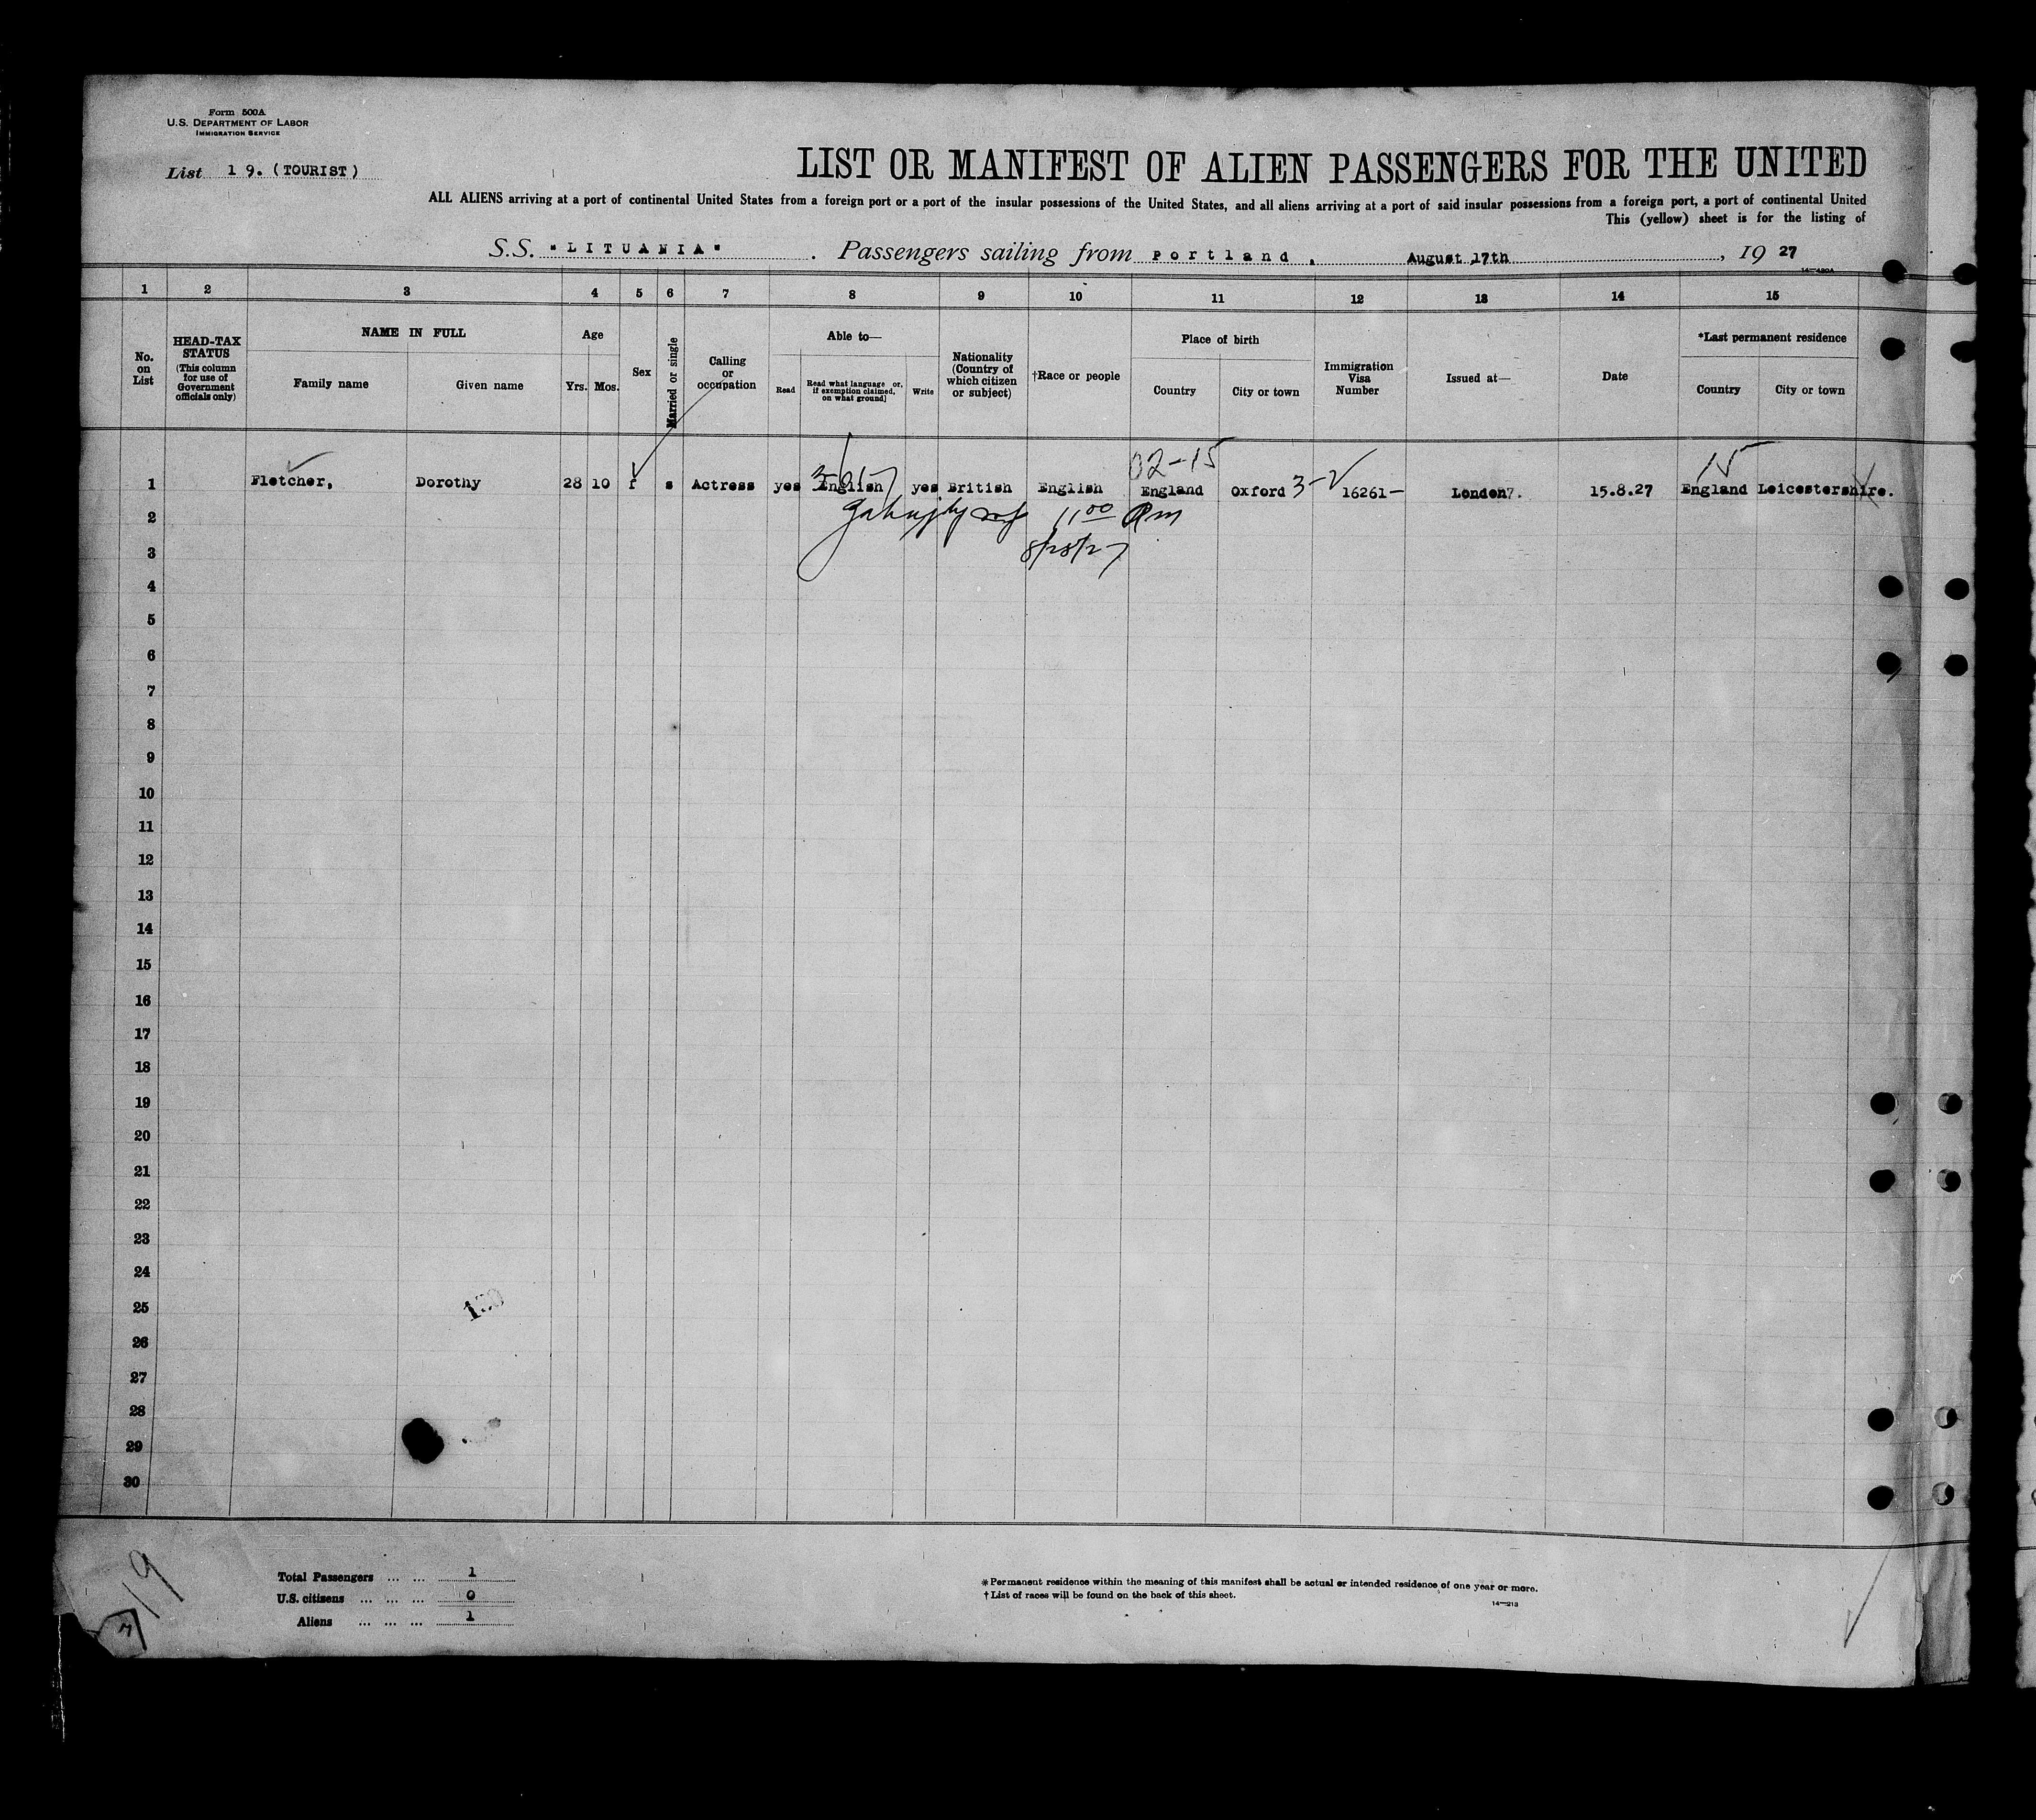 Form 500A
U.S. DEPARTMENT OF LABOR
IMMIGRATION SERVICE
List 1 9. (TOURIST)
LIST OR MANIFEST OF ALIEN PASSENGERS FOR THE UNITED
ALL ALIENS arriving at a port of continental United States from a foreign port or a port of the insular possessions of the United States, and all aliens arriving at a port of said insular possessions from a foreign port, a port of continental United
This (yellow) sheet is for the listing of
S.S. "LITUANIA". Passengers sailing from Portland, August 17th, 19 27
1 2 3 4 5 6 7 8 9 10 11 12 13 14 15
No. on List
HEAD-TAX STATUS
(This column for use of Government officials only)
NAME IN FULL
Family name Given name
Age
Yrs. Mos.
Sex
Married or single
Calling or occupation
Able to—
Read
Read what language or, if exemption claimed, on what ground]
Write
Nationality (Country of which citizen or subject)
†Race or people
Place of birth
Country City or town
Immigration Visa Number
Issued at—
Date
*Last permanent residence
Country City or town
02-15 15
1 Fletcher, Dorothy 28 10 f s Actress yes English yes British English England Oxford 3- 16261- London. 15.8.27 England Leicestershire.
2 11 00 am
3 8/28/27
4
5
6
7
8
9
10
11
12
13
14
15
16
17
18
19
20
21
22
23
24
25
26
27
28
29
30
19
Total Passengers ... ... 1
U.S. citizens ... ... ... 0
Aliens ... ... ... 1
*Permanent residence within the meaning of this manifest shall be actual or intended residence of one year or more.
†List of races will be found on the back of this sheet.
14—213